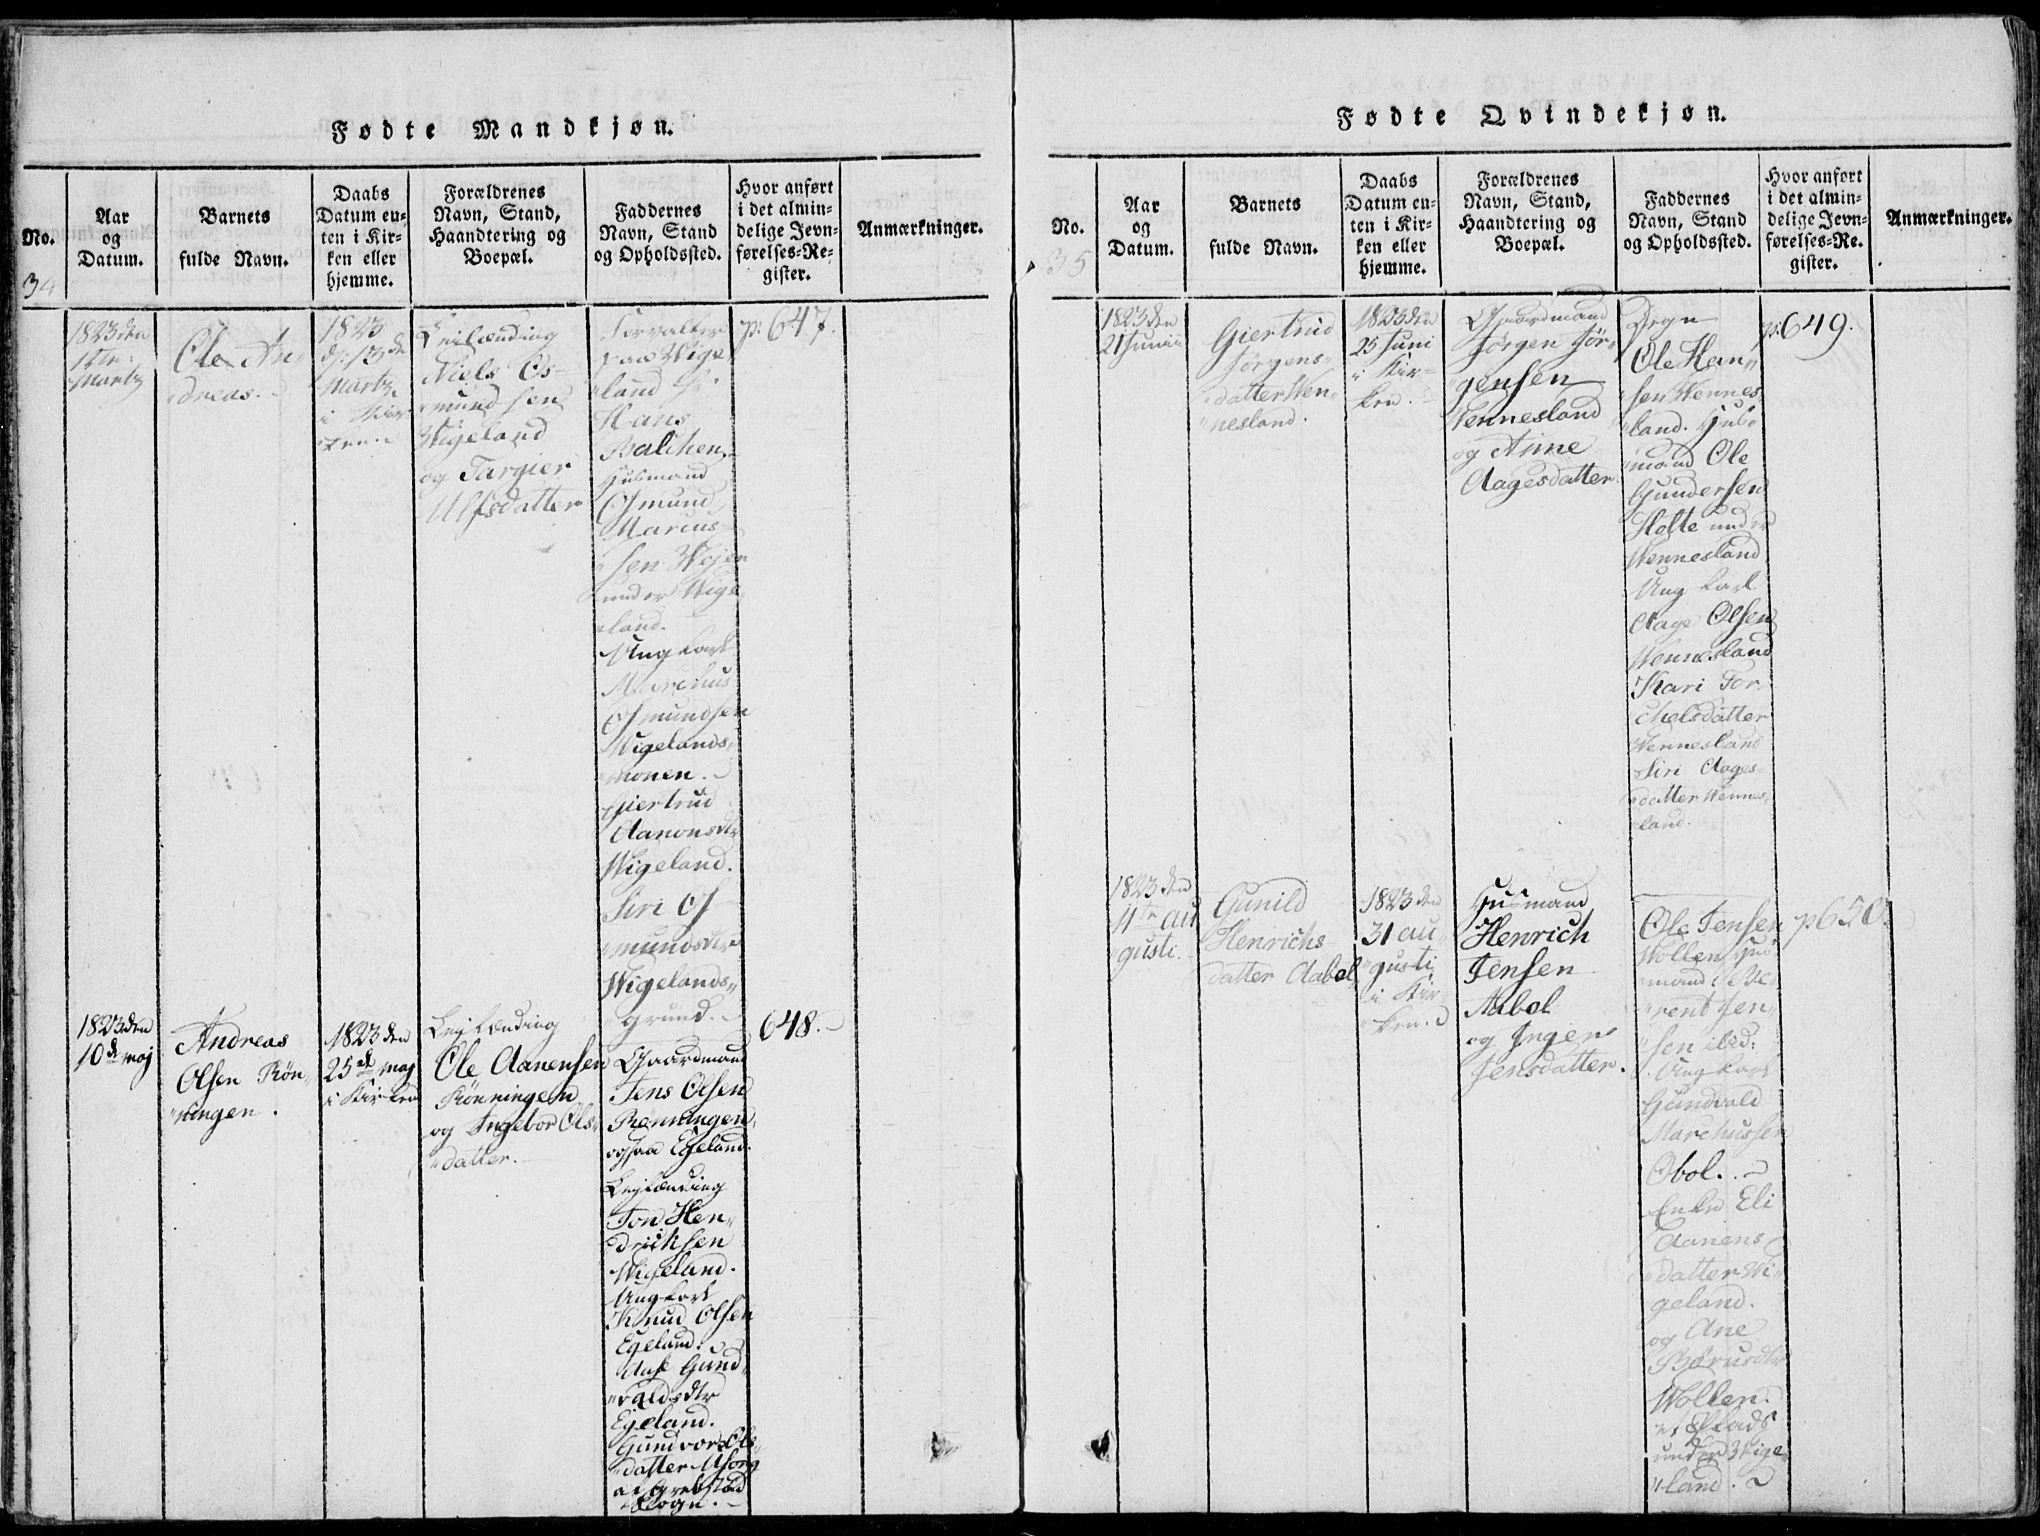 Fødte Mandkjøn.
No.
Aar
og
Datum.
Barnets
fulde Navn.
Daabs
Datum en-
ten i Kir-
ken eller
hjemme.
Forældrenes
Navn, Stand,
Haandtering og
Boepæl.
Faddernes
Navn, Stand
og Opholdssted.
Hvor anført
i det almin-
delige Jevn-
førelses-Re-
gister.
Anmærkninger.
34
1823 den
Martz
Ole An„
„dreas.
1823
d: 13de
Martz
i Kir
„ken.
Leilænding
Niels Os„
„mundsen
Wigeland
og Targier
Ulfsdatter
Forvalter
paa Wige„
„land Hr
Hans
Balchen.
Husmand
Osmund
Marcus„
sen Wejen
under Wige„
„land.
Ung karl
Marchus
Osmundsen
Wigelands„
„monen.
Giertrud
Aanonsdtr
Wigeland.
Siri Os„
„mundsdtr
Wigelands„
grund.
p: 647.
1823 den
10de maj
Andreas
Olsen Rön„
„ningen.
1823 den
25de maj
i Kirken
Lejlænding
Ole Aanensen
Rönningen
og Ingebor Ols„
„datter.
Gaardmand
Jens Olsen
Rönningen,
ogsaa Egeland.
Lejlænding
Jon Hen„
„drichsen
Wigeland.
Ung karl
Knud Olsen
Egeland.
Aase Gund„
„valdsdtr
Egeland.
Gundvor Ols„
„datter
Sogn.
648.
Fødte Qvindekjøn.
No.
Aar
og
Datum.
Barnets
fulde Navn.
Daabs
Datum en-
ten i Kir-
ken eller
hjemme.
Forældrenes
Navn, Stand,
Haandtering og
Boepæl.
Faddernes
Navn, Stand
og Opholdssted.
Hvor anført
i det almin-
delige Jevn-
førelses-Re-
gister.
Anmærkninger.
35
1823 den
21 Junii
Giertrud
Jörgens„
„datter Wen„
„nesland.
1823 den
25 Juni
i Kir„
ken.
Gaardmand
Jörgen Jör„
„gensen
Wennesland
og Anne
Aagesdatter
Degn
Ole Han„
„sen Wennes„
„land. Hus„
„mand Ole
Gundersen
Holte under
Wennesland
Ung karl
Aage Olsen
Wennesland
Kari Tor„
„chelsdatter
Wennesland
Siri Aages„
„datter Wennes„
„land.
p: 649.
1823 den
11te au
gusti.
Gunild
Henrichs„
datter Aabel
1823 den
31 au„
„gusti
i Kir„
ken.
Husmand
Henrich
Jensen
Aabel
og Inger
Jensdatter.
Ole Jensen
Wollen Hus„
„mand
„rent Jen„
„sen ibid:
Ung karl
Gundvald
Marchussen
Obol.
Enke Eli
Aanens„
„datter Wi„
geland.
og Ane
Wollen.
et Plads
under Wige„
„land.
p 650.